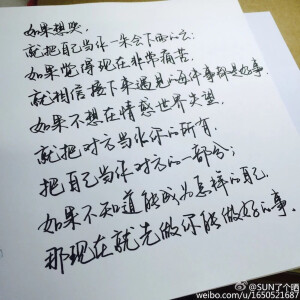 如果想哭,
就把自己当作一朵会下雨的云;
如果觉得现在非常痛苦,
就相信接下来遇见的每件事都是好事.
如果不想在情感世界失望,
就把对方当作你的所有,
把自己当作对方的一部分;
如果不知道能成为怎样的自己,
那现在就先做你能做好的事.
@SUN了个晒
weibo.com/u/1650521687